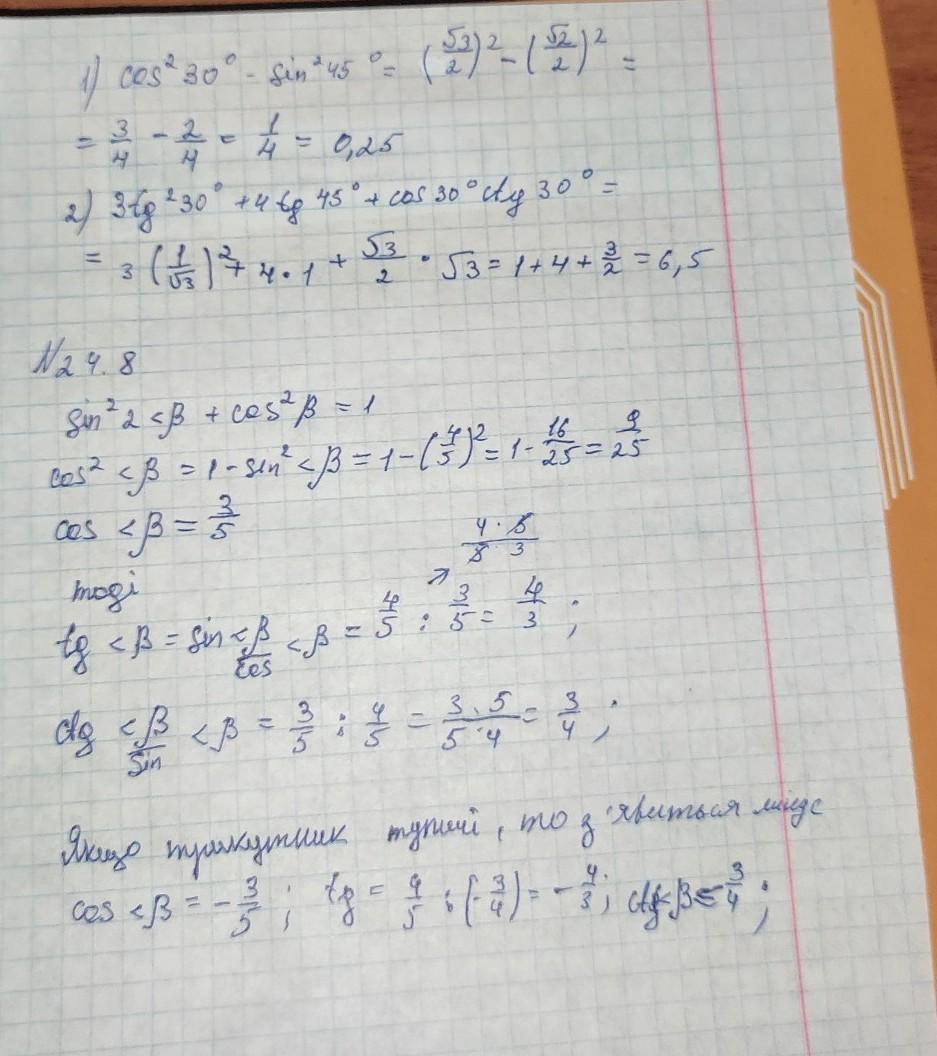 1) cos² 30° - sin² 45° = (√3/2)² - (√2/2)² =
= 3/4 - 2/4 = 1/4 = 0,25
2) 3tg² 30° + 4 tg 45° + cos 30° ctg 30° =
= 3 (1/√3)² + 4 · 1 + √3/2 · √3 = 1 + 4 + 3/2 = 6,5
N24.8
sin² 2 <β + cos² β = 1
cos² <β = 1 - sin² <β = 1 - (4/5)² = 1 - 16/25 = 9/25
cos <β = 3/5
4 · 5 / 5 3
тоді
tg <β = sin <β/cos <β = 4/5 : 3/5 = 4/3 ;
ctg <β/sin <β = 3/5 : 4/5 = 3 · 5 / 5 · 4 = 3/4 ;
Якщо трикутник тупий, то з'явиться мінус
cos <β = - 3/5 ; tg = 4/5 : (- 3/4) = - 4/3 ; ctg <β = - 3/4 ;